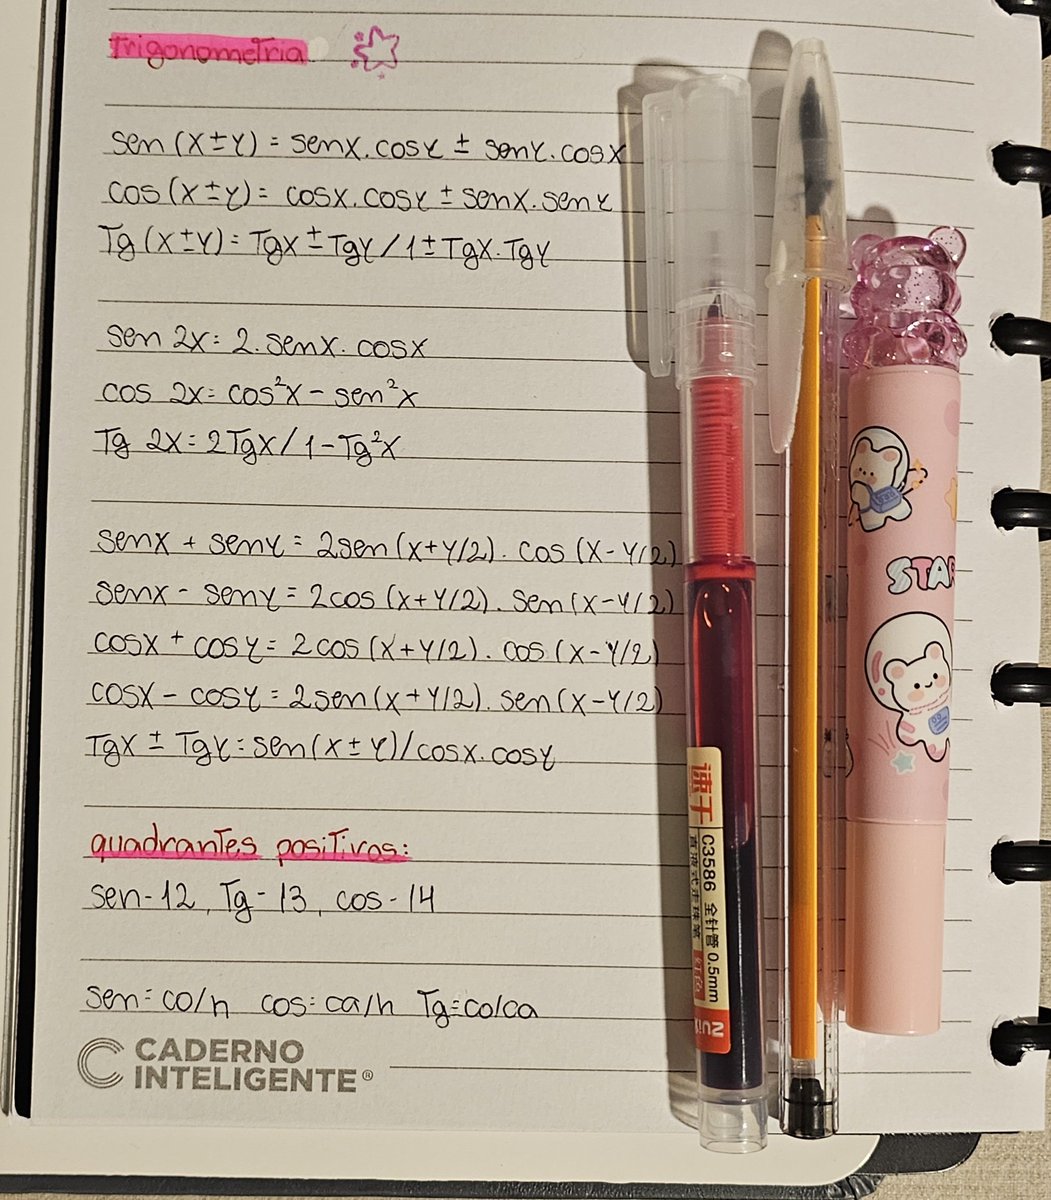 Trigonometria
sen (x±y) = senx.cosy ± seny.cosx
cos (x±y) = cosx.cosy ± senx.seny
Tg (x±y) = Tgx ± Tgy / 1 ± Tgx.Tgy
sen 2x = 2.senx.cosx
cos 2x = cos²x - sen²x
Tg 2x = 2Tgx / 1 - Tg²x
senx + seny = 2sen (x+y/2) . cos (x-y/2)
senx - seny = 2cos (x+y/2) . sen (x-y/2)
cosx + cosy = 2cos (x+y/2) . cos (x-y/2)
cosx - cosy = 2sen (x+y/2) . sen (x-y/2)
Tgx ± Tgy = sen (x±y) / cosx.cosy
quadrantes positivos:
sen - 12, Tg - 13, cos - 14
sen = co/h cos = ca/h Tg = co/ca
CADERNO
INTELIGENTE®
速干
C3586 全针管 0.5mm
直液式走珠笔
STAR